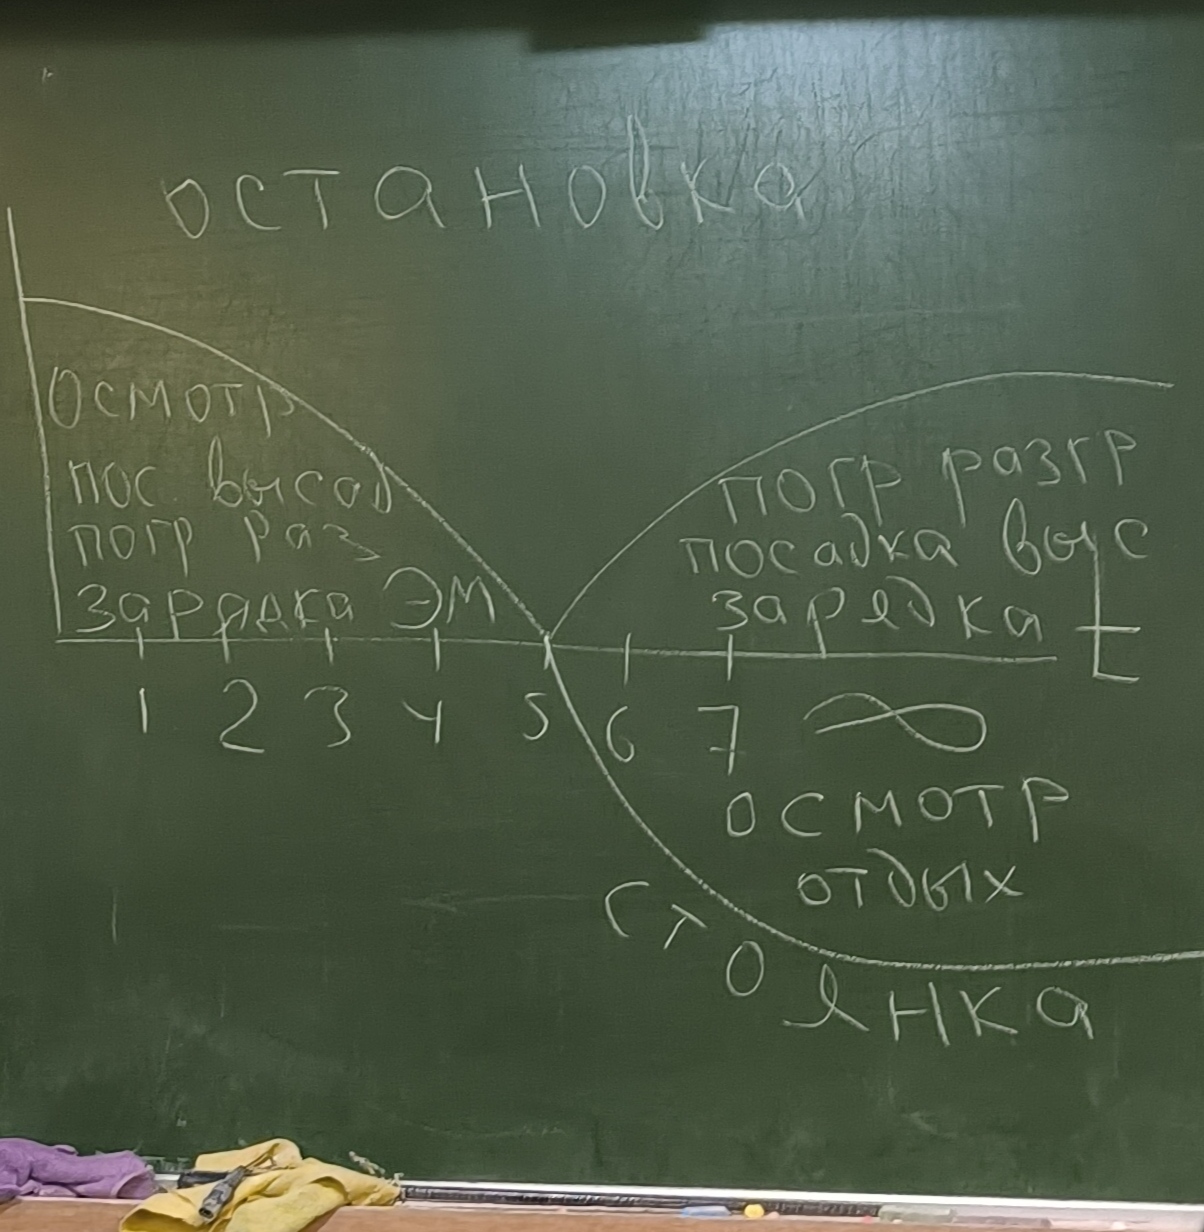 остановка
осмотр
пос. высад
погр раз
зарядка ЭМ
погр разгр
посадка выс
зарядка
t
1 2 3 4 5 6 7 ∞
осмотр
отдых
стоянка